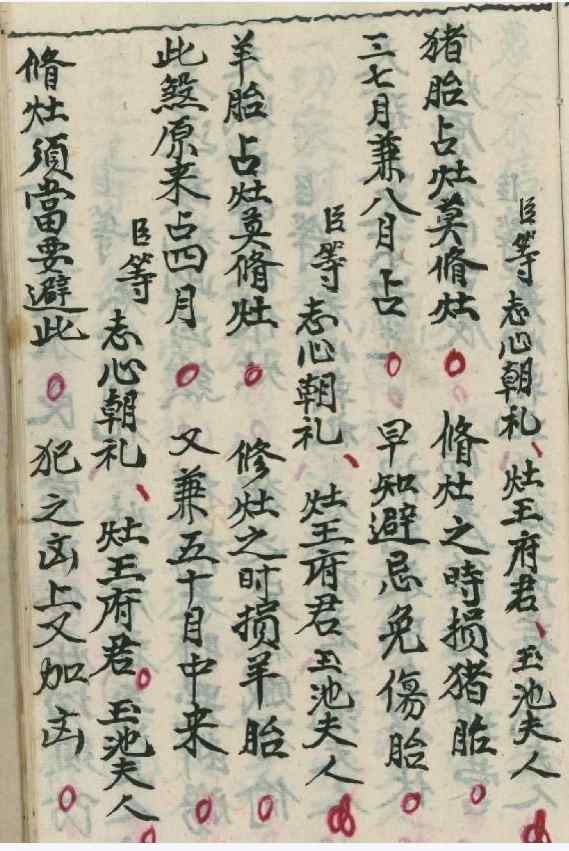 臣等 志心朝礼、灶王府君、玉池夫人
猪胎占灶莫脩灶 脩灶之時损猪胎
三七月兼八月占 早知避忌免傷胎
臣等 志心朝礼、灶王府君 玉池夫人
羊胎占灶莫脩灶 修灶之时损羊胎
此煞原来占四月 又兼五十月中来
臣等 志心朝礼、灶王府君 玉池夫人
脩灶須當要避此 犯之凶上又加凶